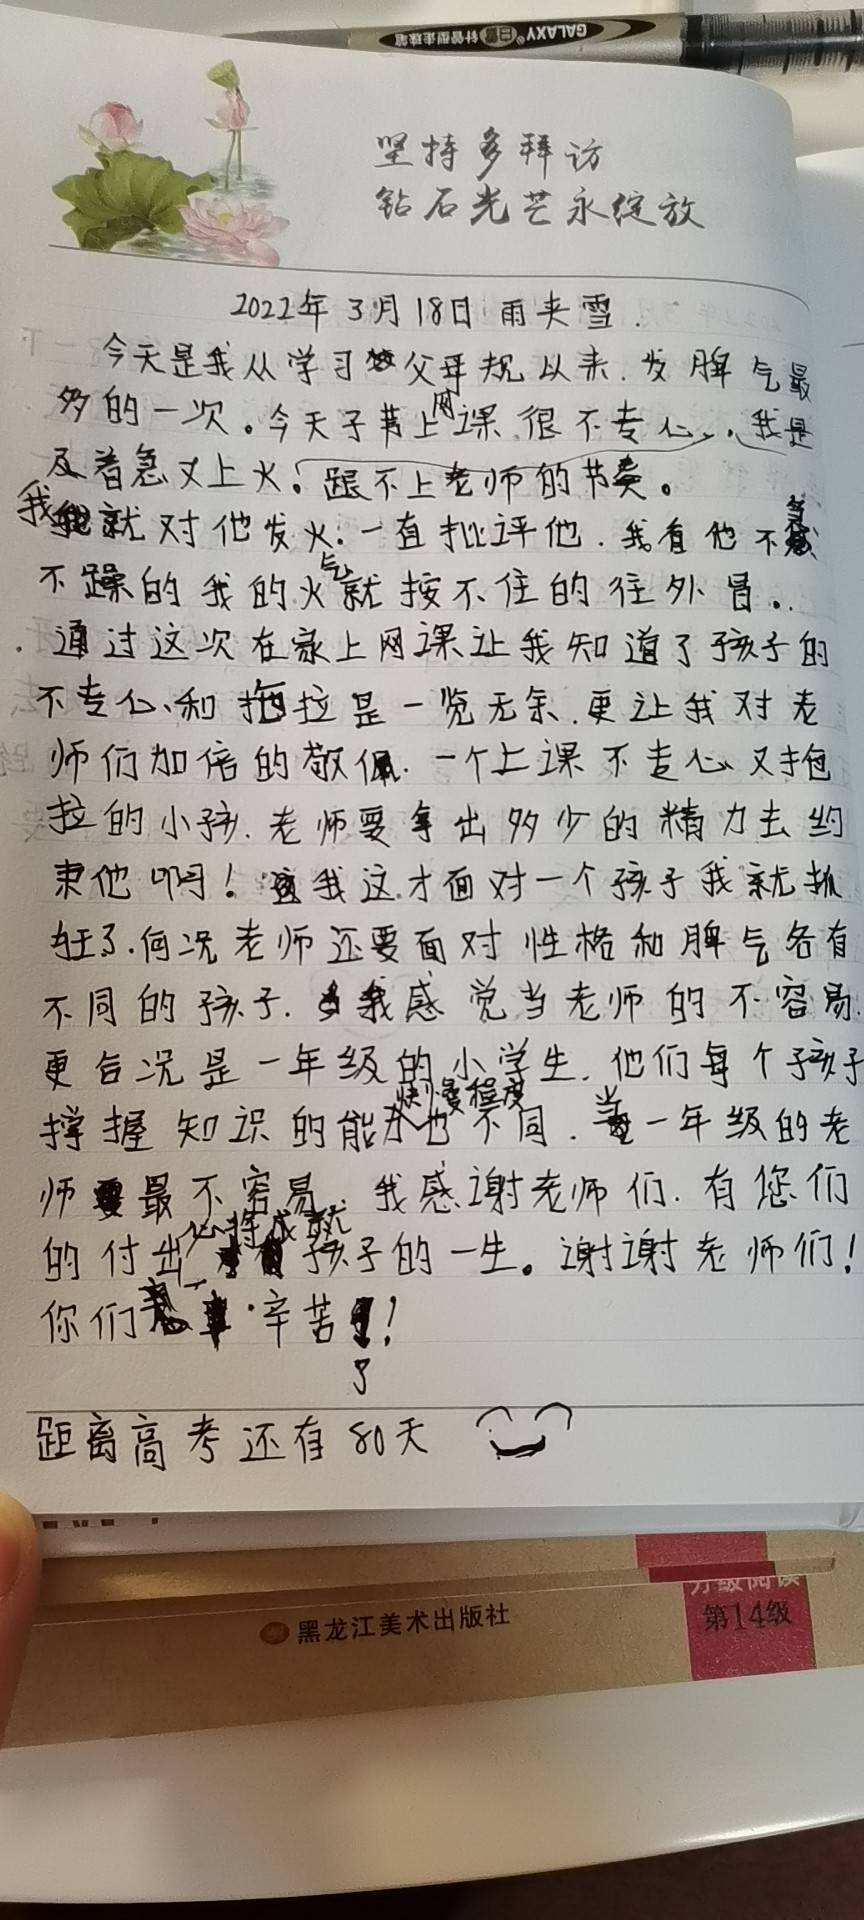 GALAXY 日宝 针管型走珠笔
坚持多拜访
钻石光芒永绽放
2022年3月18日 雨夹雪.
今天是我从学习父母规以来.发脾气最
多的一次。今天子芮上网课很不专心,我是
及着急又上火。跟不上老师的节奏。
我就对他发火.一直批评他.我看他不急
不躁的我的火气就按不住的往外冒。
通过这次在家上网课让我知道了孩子的
不专心、和拖拉是一览无余.更让我对老
师们加倍的敬佩.一个上课不专心又拖
拉的小孩.老师要拿出多少的精力去约
束他啊!我这才面对一个孩子我就抓
狂了.何况老师还要面对性格和脾气各有
不同的孩子.我感觉当老师的不容易.
更合况是一年级的小学生.他们每个孩子
撑握知识的能力快慢程度也不同.当一年级的老
师最不容易.我感谢老师们.有您们
的付出必将成就孩子的一生。谢谢老师们!
你们辛苦了!
距离高考还有80天
黑龙江美术出版社
分级阅读
第14级